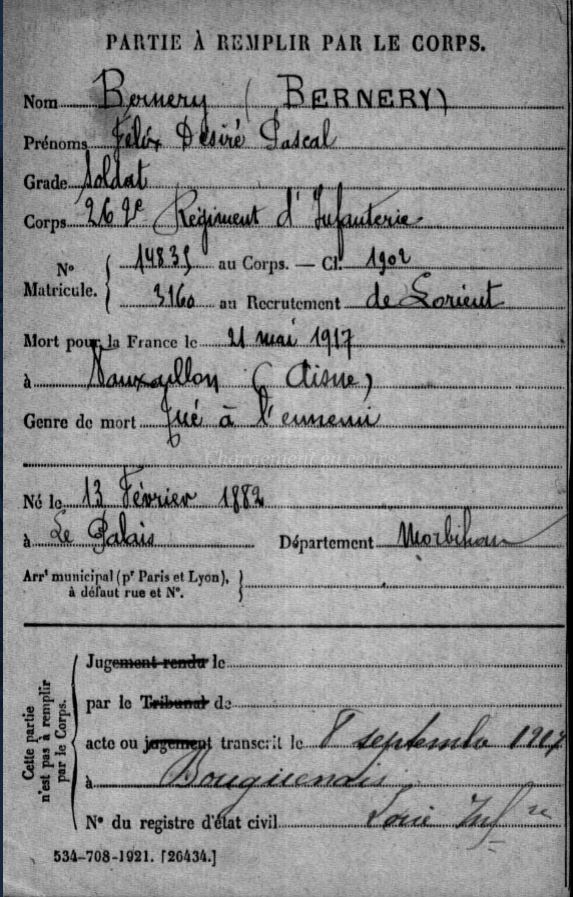 PARTIE À REMPLIR PAR LE CORPS.
Nom Bernery (BERNERY)
Prénoms Félix Désiré Pascal
Grade Soldat
Corps 262e Régiment d'Infanterie
N° Matricule. { 14835 au Corps. — Cl. 1902
3160 au Recrutement de Lorient
Mort pour la France le 21 mai 1917
à Vauxaillon (Aisne)
Genre de mort Tué à l'ennemi
Chargement en cours
Né le 13 Février 1882
à Le Palais Département Morbihan
Arrt municipal (pr Paris et Lyon), }
à défaut rue et N°.
Cette partie n'est pas à remplir par le Corps.
Jugement rendu le
par le Tribunal de
acte ou jugement transcrit le 8 septembre 1917
à Bouguenais
N° du registre d'état civil Loire Infre
534-708-1921. [26434.]